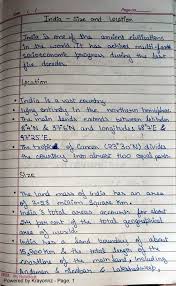 India - Size and Location
India is one of the ancient civilizations
in the world. It has achieved multi-faceted
socioeconomic progress during the last
five decades.
Location
• India is a vast country.
• lying entirely in the northern hemisphere
• The main lands extends between latitudes
8°4'N & 37°6'N and longitudes 68°7'E &
97°25'E.
• The tropic of Cancer (23°30'N) divides
the country into almost two equal parts.
Size
• The land mass of India has an area
of 3.28 million square km.
• India's total areas accounts for about
2.4 per cent of the total geographical
area of world.
• India has a land boundary of about
15,200 km & the total length of the
coastline of the main land, including
Andaman & Nicobar & Lakshadweep,
Powered by Krayonnz - Page: 1